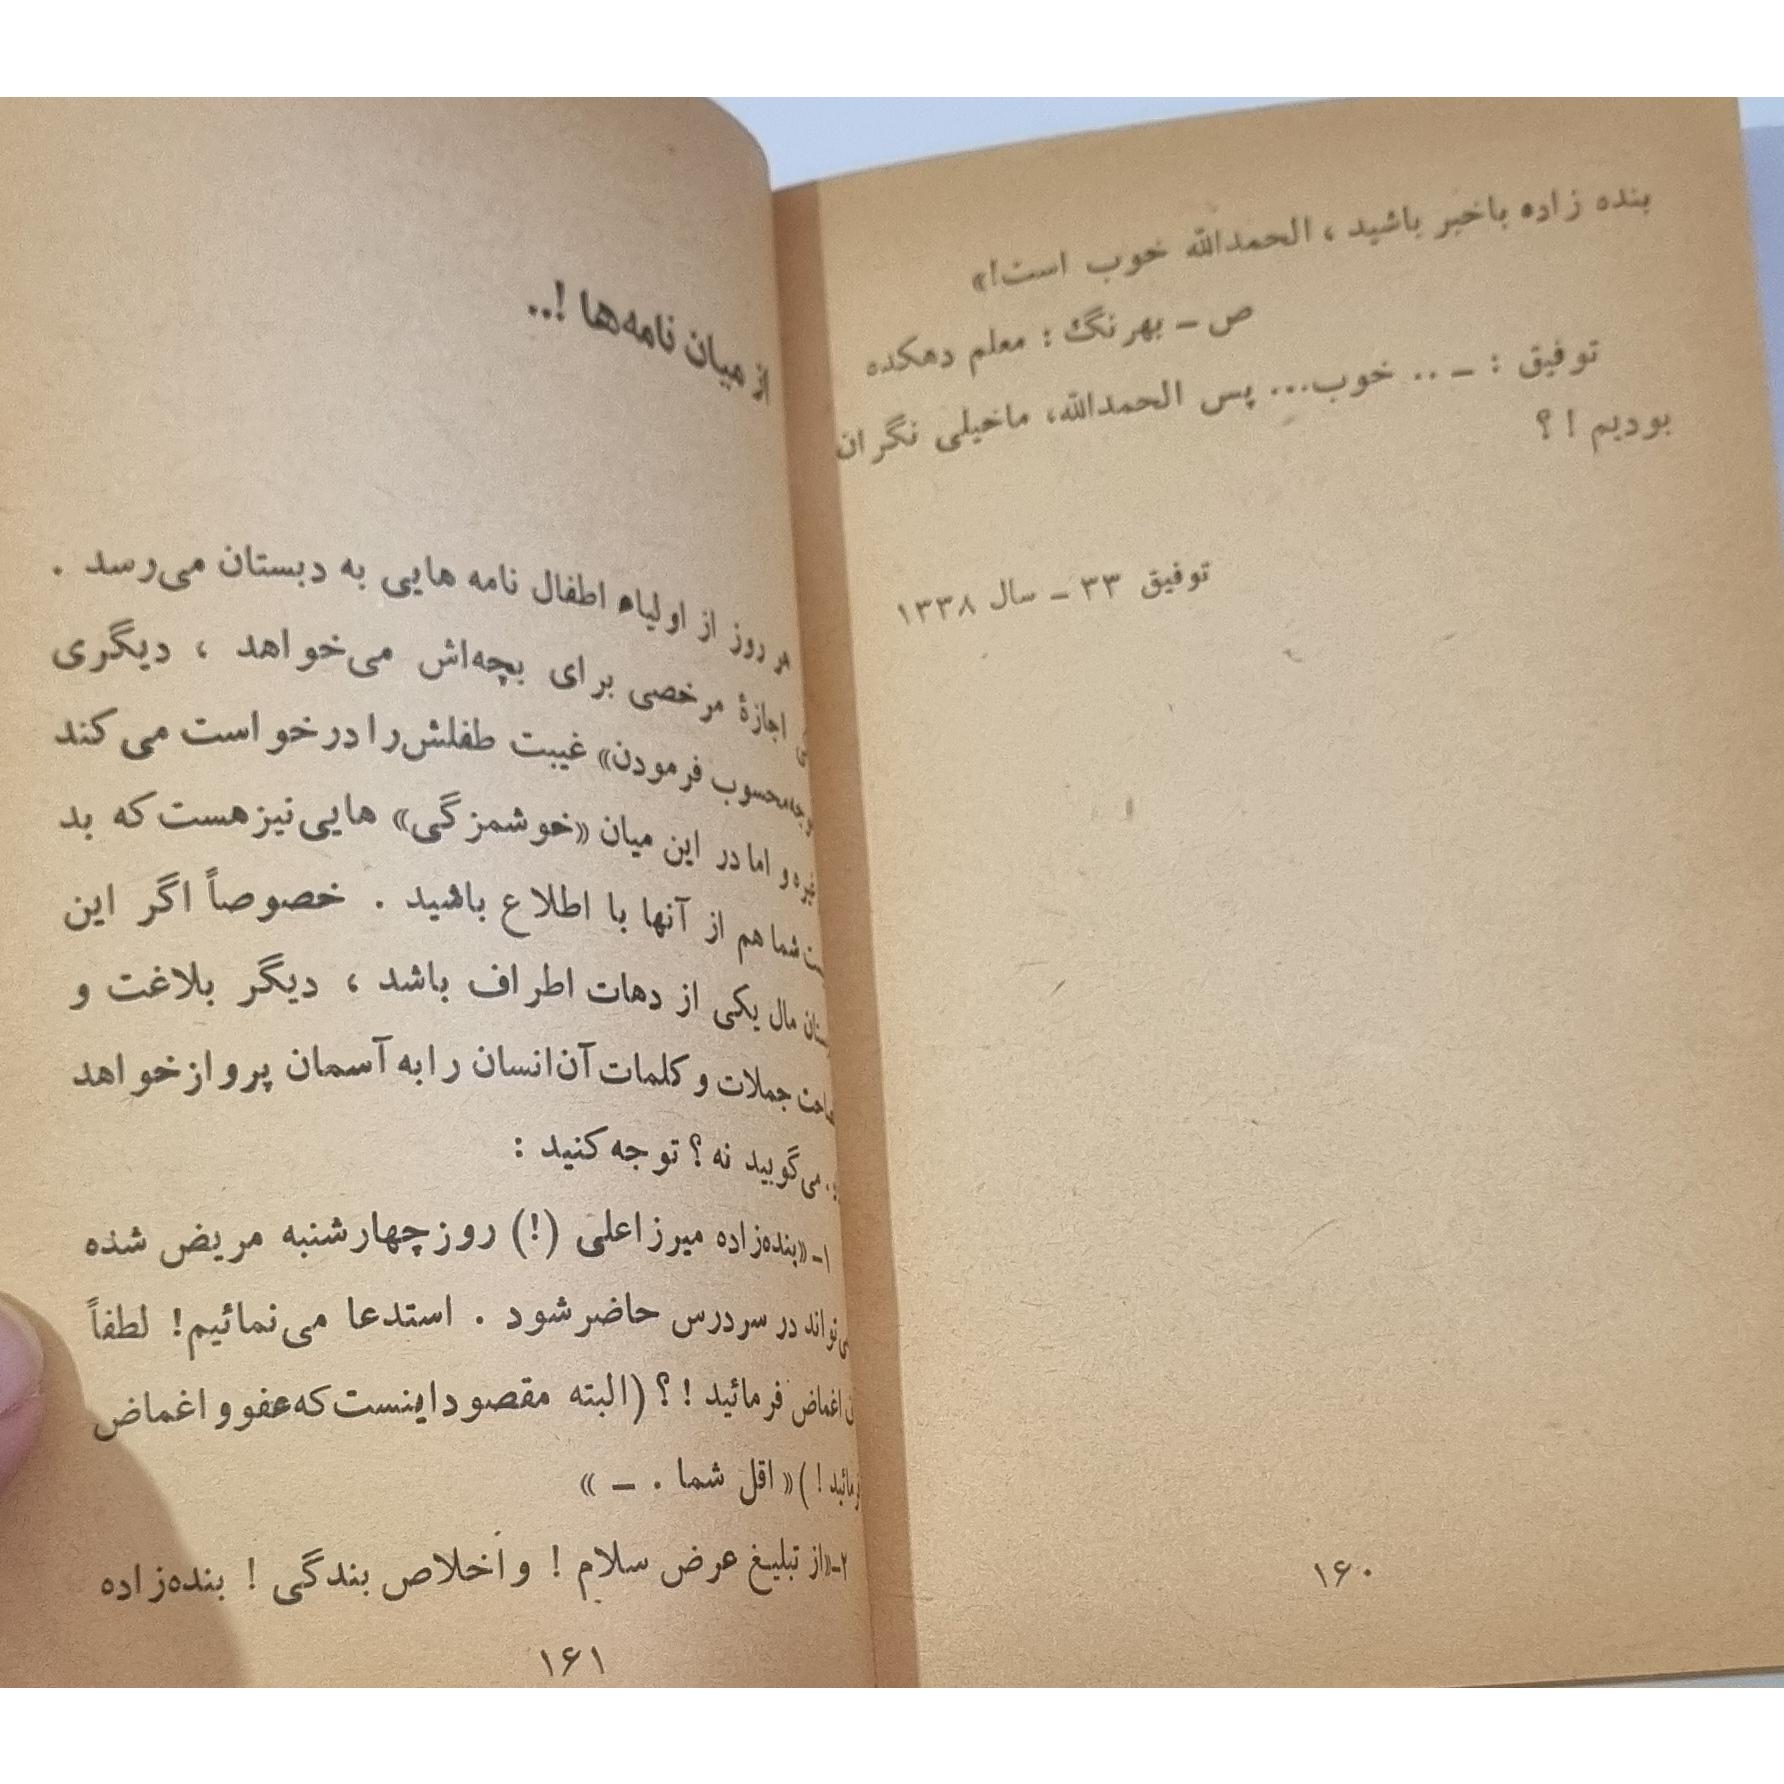 بنده زاده باخبر باشید ، الحمدالله خوب است!»
ص ـ بهرنگ : معلم دهکده
توفیق : ـ .. خوب... پس الحمدالله، ماخیلی نگران
بودیم ! ؟
توفیق ۳۳ ـ سال ۱۳۳۸
۱۶۰
از میان نامه‌ها !..
هر روز از اولیاء اطفال نامه هایی به دبستان می‌رسد .
اجازهٔ مرخصی برای بچه‌اش می‌خواهد ، دیگری
محسوب فرمودن» غیبت طفلش را درخواست می کند
غیره و اما در این میان «خوشمزگی» هایی نیز هست که بد
شما هم از آنها با اطلاع باشید . خصوصاً اگر این
مال یکی از دهات اطراف باشد ، دیگر بلاغت و
جملات و کلمات آن انسان را به آسمان پرواز خواهد
می‌گویید نه ؟ توجه کنید :
۱ـ «بنده‌زاده میرزاعلی (!) روز چهارشنبه مریض شده
در سر درس حاضر شود . استدعا می‌نمائیم! لطفاً
اغماض فرمائید ! ؟ (البته مقصود اینست که عفو و اغماض
! )» اقل شما . ـ »
۲ـ «از تبلیغ عرض سلام ! و اخلاص بندگی ! بنده‌زاده
۱۶۱